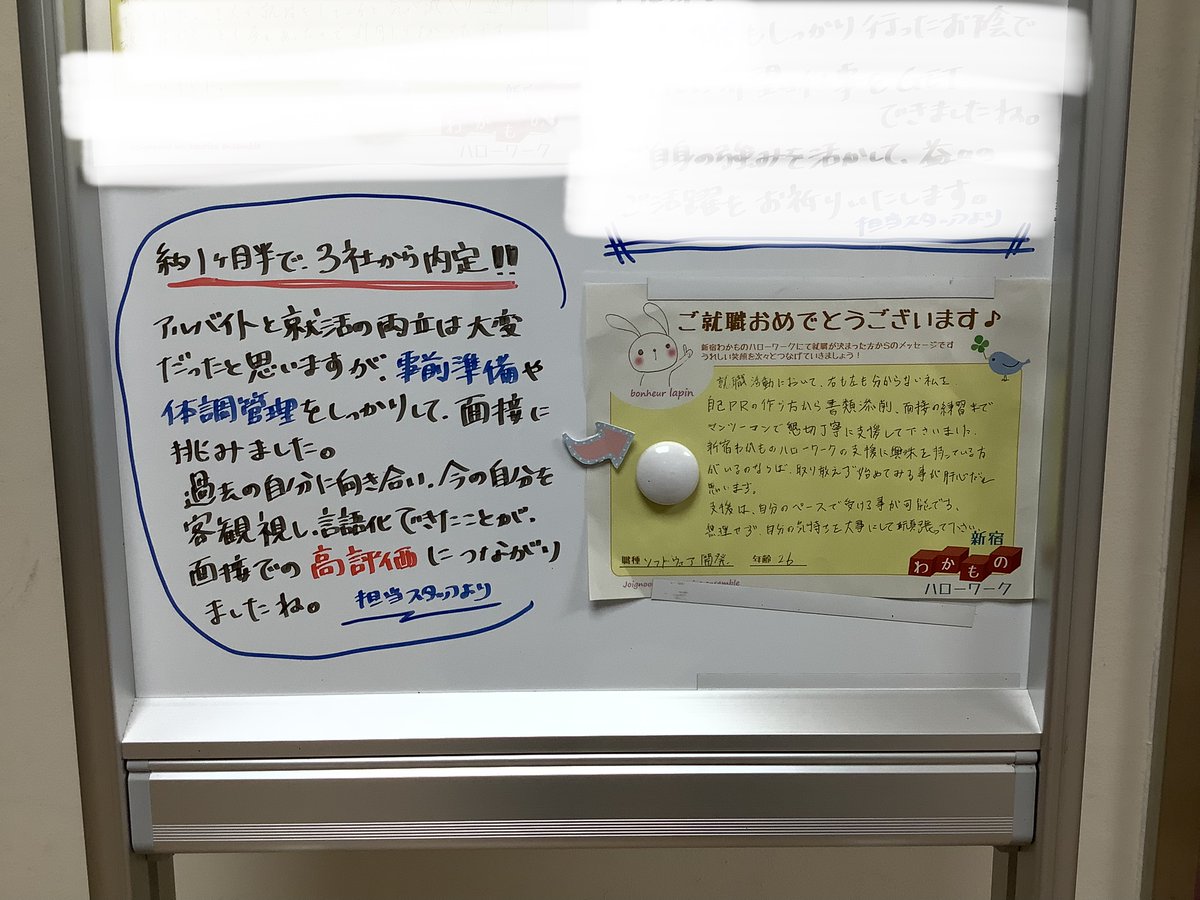 しっかり行ったお陰で
できましたね。
ご自身の強みを活かして、益々の
ご活躍をお祈りいたします。
担当スタッフより
わかもの
ハローワーク
約1ヶ月半で、3社から内定!!
アルバイトと就活の両立は大変
だったと思いますが、事前準備や
体調管理をしっかりして、面接に
挑みました。
過去の自分に向き合い、今の自分を
客観視し、言語化できたことが、
面接での高評価につながり
ましたね。
担当スタッフより
ご就職おめでとうございます♪
新宿わかものハローワークにて就職が決まった方からのメッセージです
うれしい笑顔を次々とつなげていきましょう!
bonheur lapin
就職活動において、右も左も分からない私を、
自己PRの作り方から書類添削、面接の練習まで
マンツーマンで懇切丁寧に支援して下さいました。
新宿わかものハローワークの支援に興味を持っている方
がいるのならば、取り敢えず始めてみる事が肝心だと
思います。
支援は、自分のペースで受ける事が可能です。
無理せず、自分の気持ちを大事にして頑張って下さい。
職種 ソフトウェア開発 年齢 26
新宿
わかもの
ハローワーク